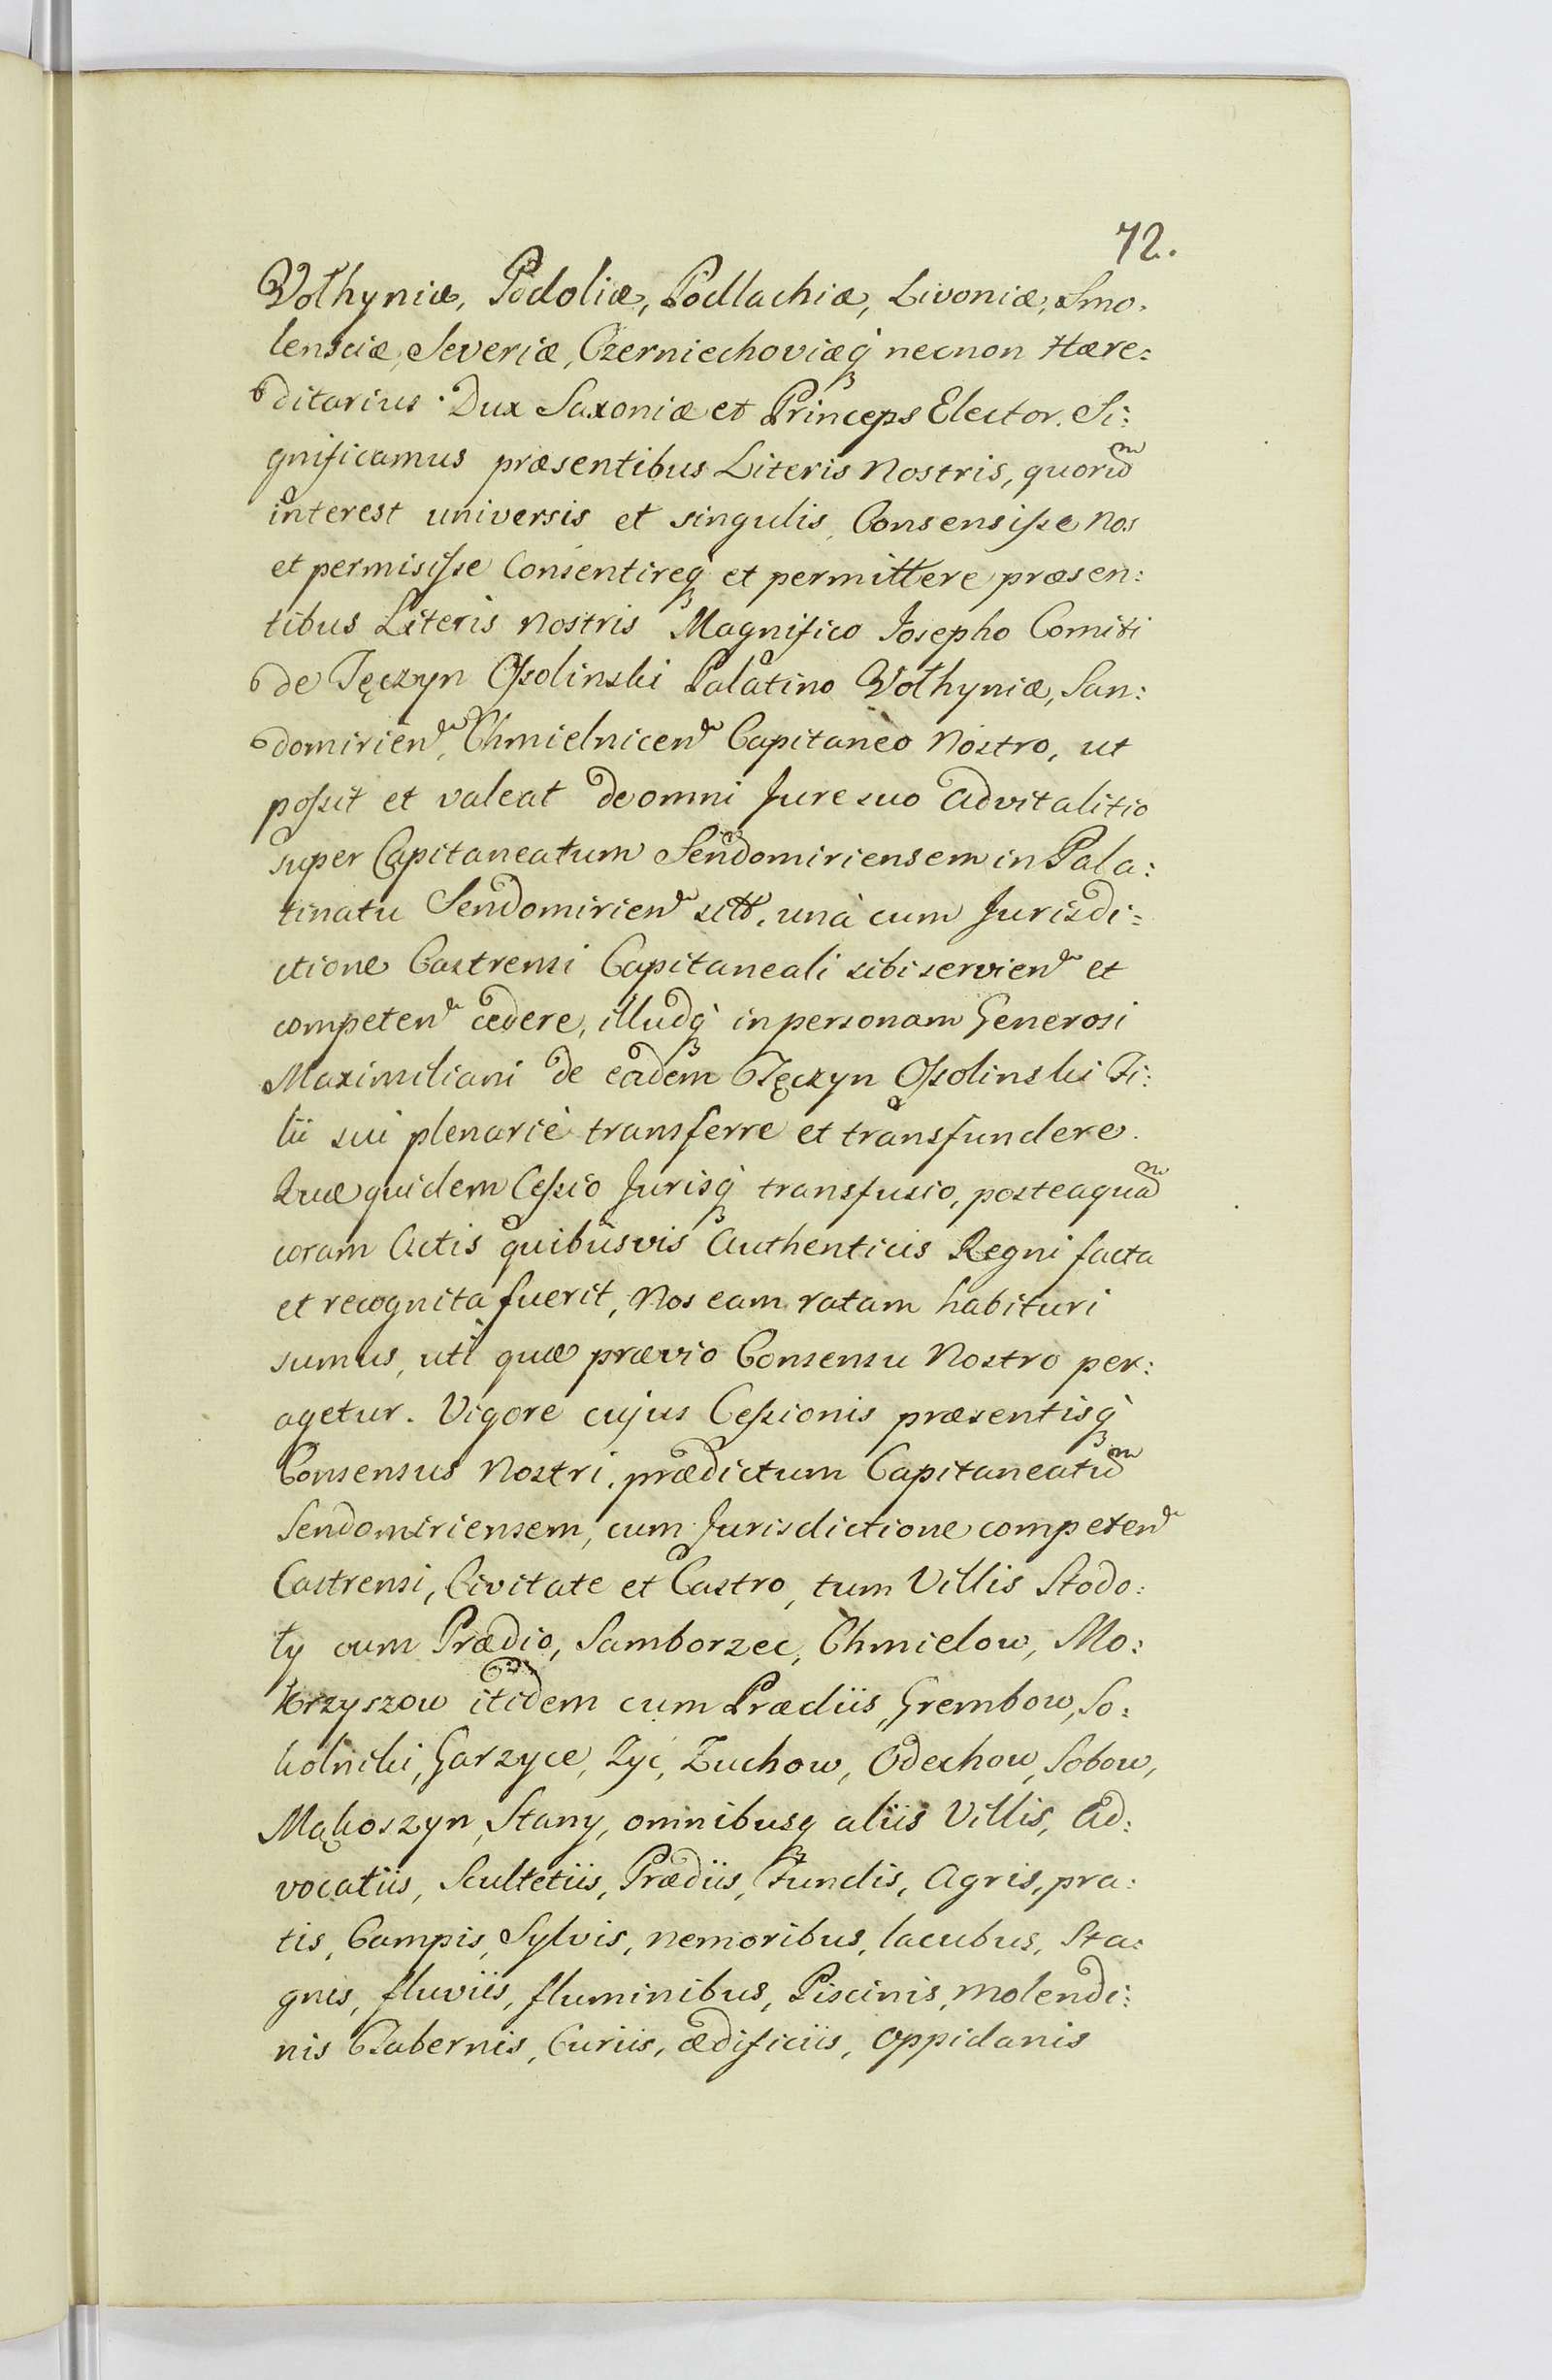 72.
Volhyniæ, Podoliæ, Podlachiæ, Livoniæ, Smo:
lensciæ, Severiæ, Czerniechoviæq́ꝫ necnon Hære:
ditarius Dux Saxoniæ et Princeps Elector. Si:
gnificamus præsentibus Literis Nostris, quorũ
interest universis et singulis, Consensiſse Nos
et permisiſse Consentireq́ꝫ et permittere præsen:
tibus Literis Nostris Magnifico Josepho Comiti
de Tęczyn Oſsolinski Palatino Volhyniæ, San:
domirien̄, Chmielnicen̄ Capitaneo Nostro, ut
poſsit et valeat de omni Jure suo advitalitio
super Capitaneatum Sendomiriensem in Pala:
tinatu Sendomirien̄ sitt. unà cum Jurisdi:
ctione Castrensi Capitaneali sibi servien̄ et
competen̄ cedere, illudq́ꝫ in personam Generosi
Maximiliani de eadem Tęczyn Oſsolinski Fi:
lii sui plenariè transferre et transfundere.
Quæ quidem Ceſsio Jurisq́ꝫ transfusio, posteaquã
coram Actis quibusvis Authenticis Regni facta
et recognita fuerit, Nos eam ratam habituri
sumus, uti quæ prævio Consensu Nostro per:
agetur. Vigore cujus Ceſsionis præsentisq́ꝫ
Consensus Nostri, prædictum Capitaneatũ
Sendomiriensem, cum Jurisdictione competen̄
Castrensi, Civitate et Castro, tum Villis Stodo:
ły cum Prædio, Samborzec, Chmielow, Mo:
krzyszow itidem cum Prædiis, Grembow, So:
kolniki, Gorzyce, Zyć, Zuchow, Odechow, Sobow,
Mąkoszyn, Stany, omnibusqꝫ aliis Villis, Ad:
vocatiis, Scultetiis, Prædiis, Fundis, Agris, pra:
tis, Campis, Sylvis, nemoribus, lacubus, Sta:
gnis, fluviis, fluminibus, Piscinis, molendi:
nis Tabernis, Curiis, ædificiis, Oppidanis